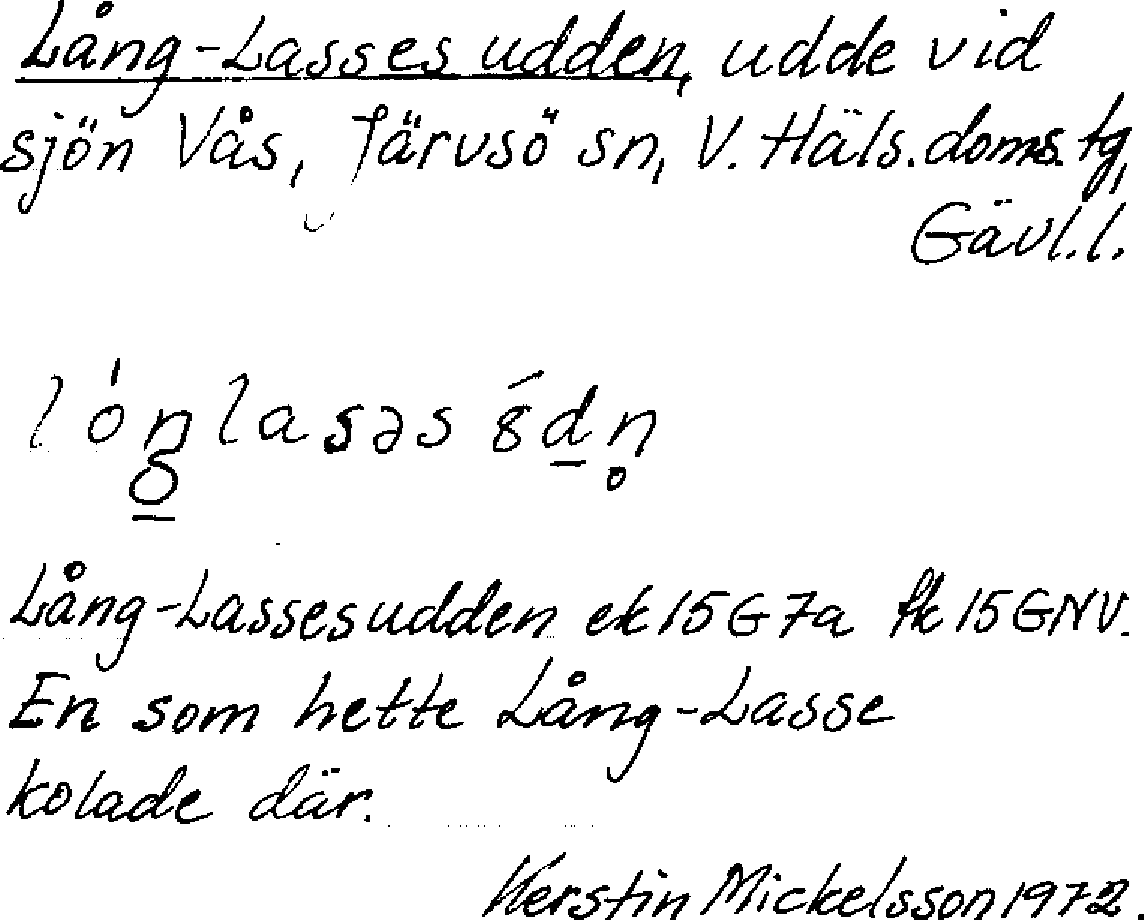 Lång-Lasses udden, udde vid
sjön Vås, Järvsö sn, V. Häls. doms. tg,
Gävl. l.
Lång-Lassesudden ek 15G7a fk 15GNV.
En som hette Lång-Lasse
kolade där.
Kerstin Mickelsson 1972.